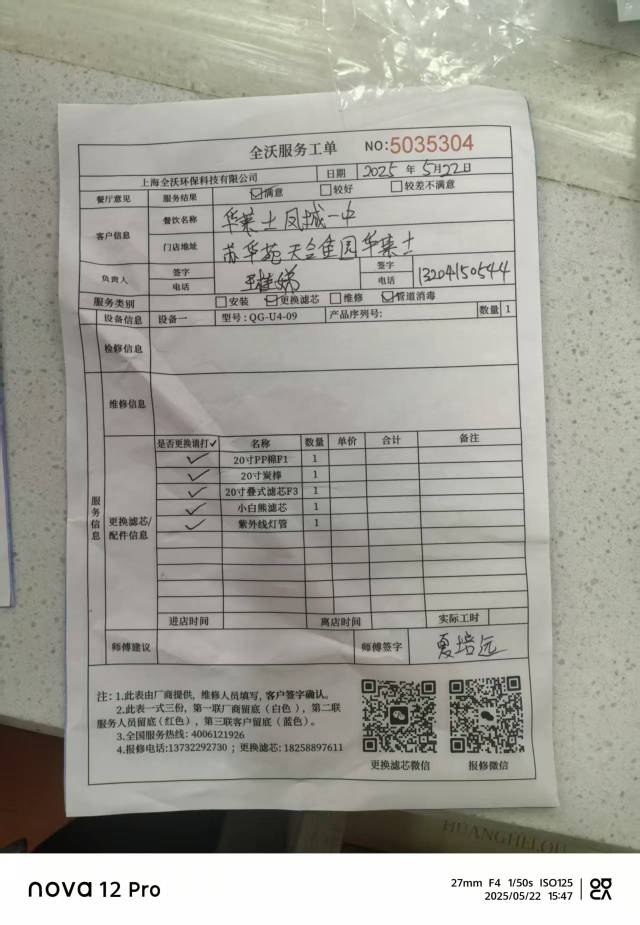 全沃服务工单 NO:5035304
上海全沃环保科技有限公司 日期 2025 年 5月22日
餐厅意见 服务结果 ☑满意 □较好 □较差不满意
客户信息 餐饮名称 华莱士凤城一中
门店地址 苏华苑天合鱼园华莱士
负责人 签字 电话 签字 电话 13204150544
服务类别 □安装 ☑更换滤芯 □维修 ☑管道消毒
设备信息 设备一 型号:QG-U4-09 产品序列号: 数量 1
检修信息
维修信息
服务信息
更换滤芯/配件信息
是否更换请打✓ 名称 数量 单价 合计 备注
✓ 20寸PP棉F1 1
✓ 20寸炭棒 1
✓ 20寸叠式滤芯F3 1
✓ 小白熊滤芯 1
✓ 紫外线灯管 1
进店时间 离店时间 实际工时
师傅建议 师傅签字 夏培远
注: 1.此表由厂商提供, 维修人员填写, 客户签字确认。
2.此表一式三份, 第一联厂商留底(白色), 第二联
服务人员留底(红色), 第三联客户留底(蓝色)。
3.全国服务热线: 4006121926
4.报修电话:13732292730 ; 更换滤芯: 18258897611
更换滤芯微信 报修微信
HUANGHELOU
nova 12 Pro
27mm F4 1/50s ISO125
2025/05/22 15:47